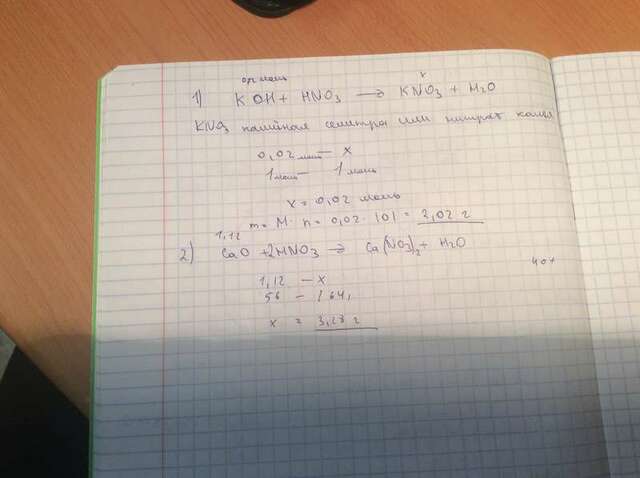 0,2 моль x
1) KOH + HNO3 → KNO3 + H2O
KNO3 калийная селитра или нитрат калия
0,02 моль — x
1 моль — 1 моль
x = 0,02 моль
m = M · n = 0,02 · 101 = 2,02 г
1,12
2) CaO + 2HNO3 → Ca(NO3)2 + H2O
1,12 — x
56 — 164
x = 3,28 г